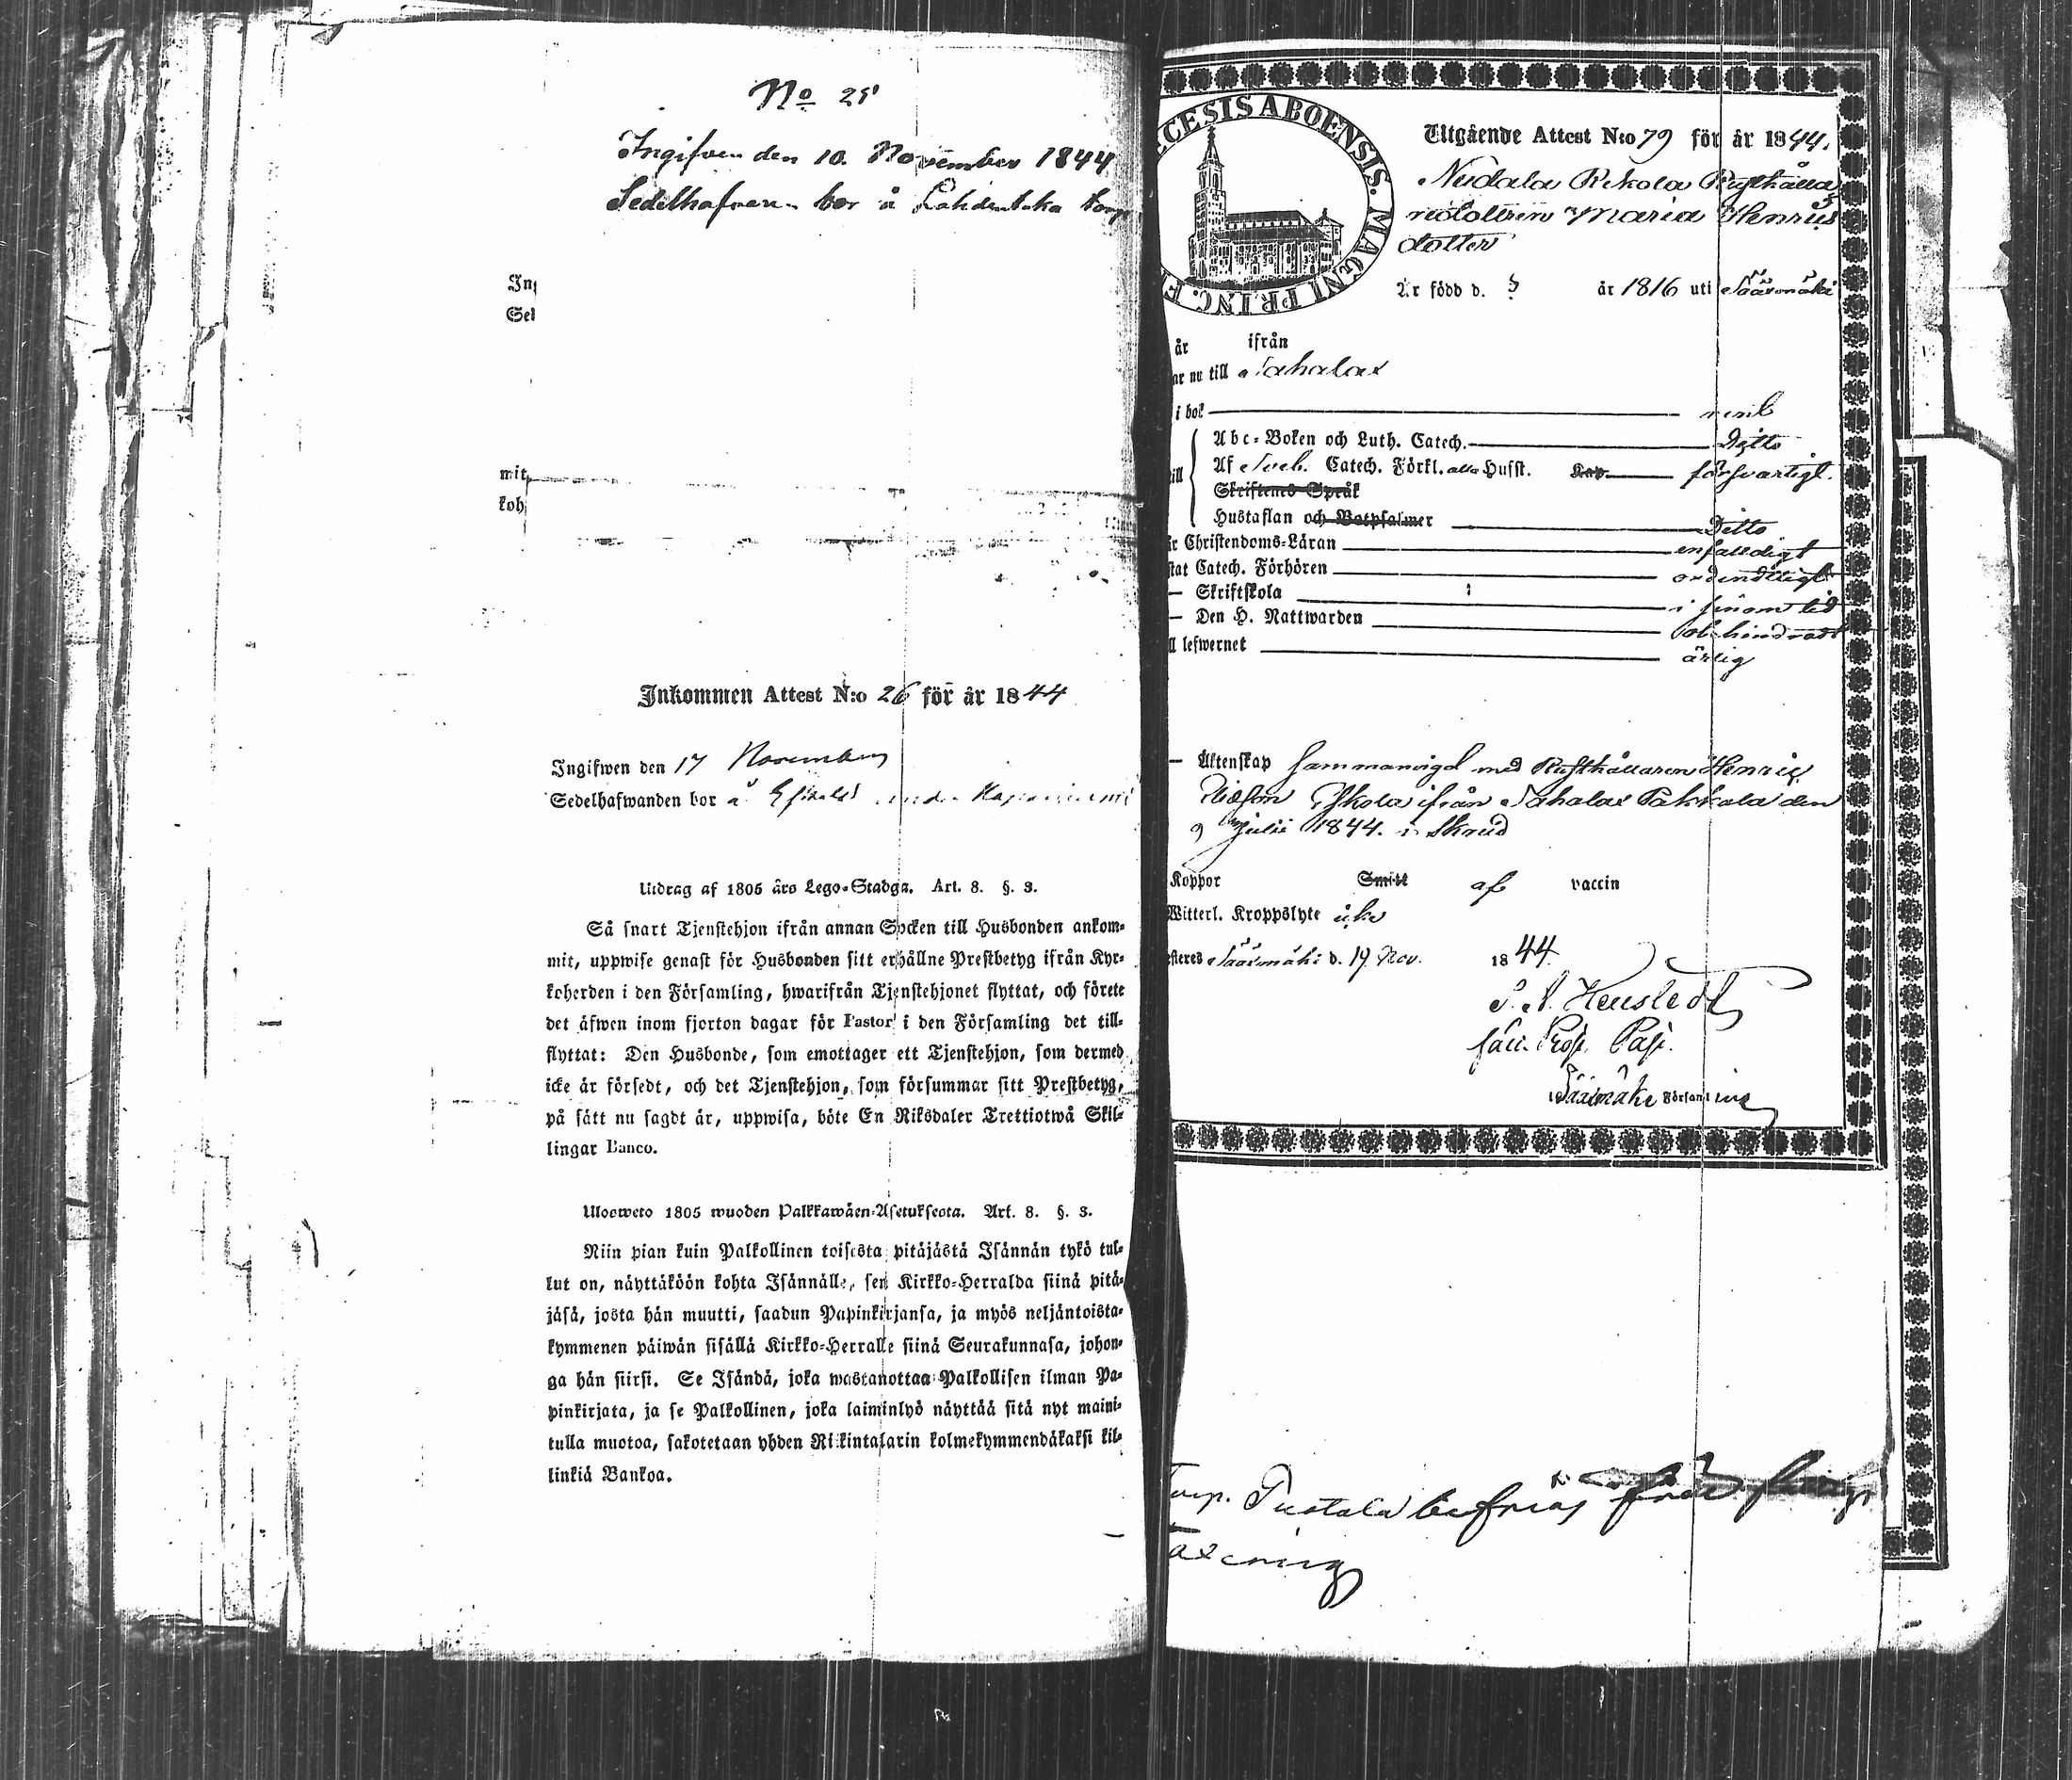 No 25
Ingifven den 10. November 1844
Sedelhafvaren bor å
In
Sel
mit,
koh
Inkommen Attest N:o 26 för år 1844
Ingifwen den 17 November
Sedelhafwanden bor å
Utdrag af 1805 års Lego-Stadga. Art. 8. §. 3.
Så snart Tjenstehjon ifrån annan Socken till Husbonden ankom-
mit, uppwise genast för Husbonden sitt erhållne Prestbetyg ifrån Kyr-
koherden i den Församling, hwarifrån Tjenstehjonet flyttat, och förete
det äfwen inom fjorton dagar för Pastor i den Församling det till-
flyttat: Den Husbonde, som emottager ett Tjenstehjon, som dermed
icke är försedt, och det Tjenstehjon, som försummar sitt Prestbetyg,
på sätt nu sagdt är, uppwisa, böte En Riksdaler Trettiotwå Skil-
lingar Banco.
Ulosweto 1805 wuoden Palkkawäen-Asetuksesta. Art. 8. §. 3.
Niin pian kuin Palkollinen toisesta pitäjästä Isännän tykö tul-
lut on, näyttäköön kohta Isännälle, sen Kirkko-Herralda siinä pitä-
jäsä, josta hän muutti, saadun Papinkirjansa, ja myös neljäntoista-
kymmenen päiwän sisällä Kirkko-Herralle siinä Seurakunnasa, johon-
ga hän siirsi. Se Isändä, joka wastanottaa Palkollisen ilman Pa-
pinkirjata, ja se Palkollinen, joka laiminlyö näyttää sitä nyt maini-
tulla muotoa, sakotetaan yhden Rikintalarin kolmekymmendäkaksi kil-
linkiä Bankoa.
CESIS ABOENSIS. MAGNI PRINC. F
Utgående Attest N:o 79 för år 1844.
Rekola Rusthålla
redottren Maria Henrics
dotter
Är född d. ? år 1816 uti Sääxmäki
år ifrån
ar nu till Sahalax
i bok
Abc-Boken och Luth. Catech. Ditto
ill Af Sveb. Catech. Förkl. alla Husst. Kap. försvarligt.
Skriftenes Språk
Hustaflan och Botpsalmer Ditto
r Christendoms-Läran enfalldigt
tat Catech. Förhören ordentligt
— Skriftskola i sinom tid
— Den H. Nattwarden obehindradt
l lefwernet ärlig
— Äktenskap Sammanvigd med Rusthållaren Henric
ifrån Sahalax Pakkala den
9 Julii 1844. i Skrud
Koppor Smitt af vaccin
Witterl. Kroppslyte icke
steres Sääxmäki d. 19. Nov. 1844.
Prop. Past.
i Sääxmäki Församling
befrias från